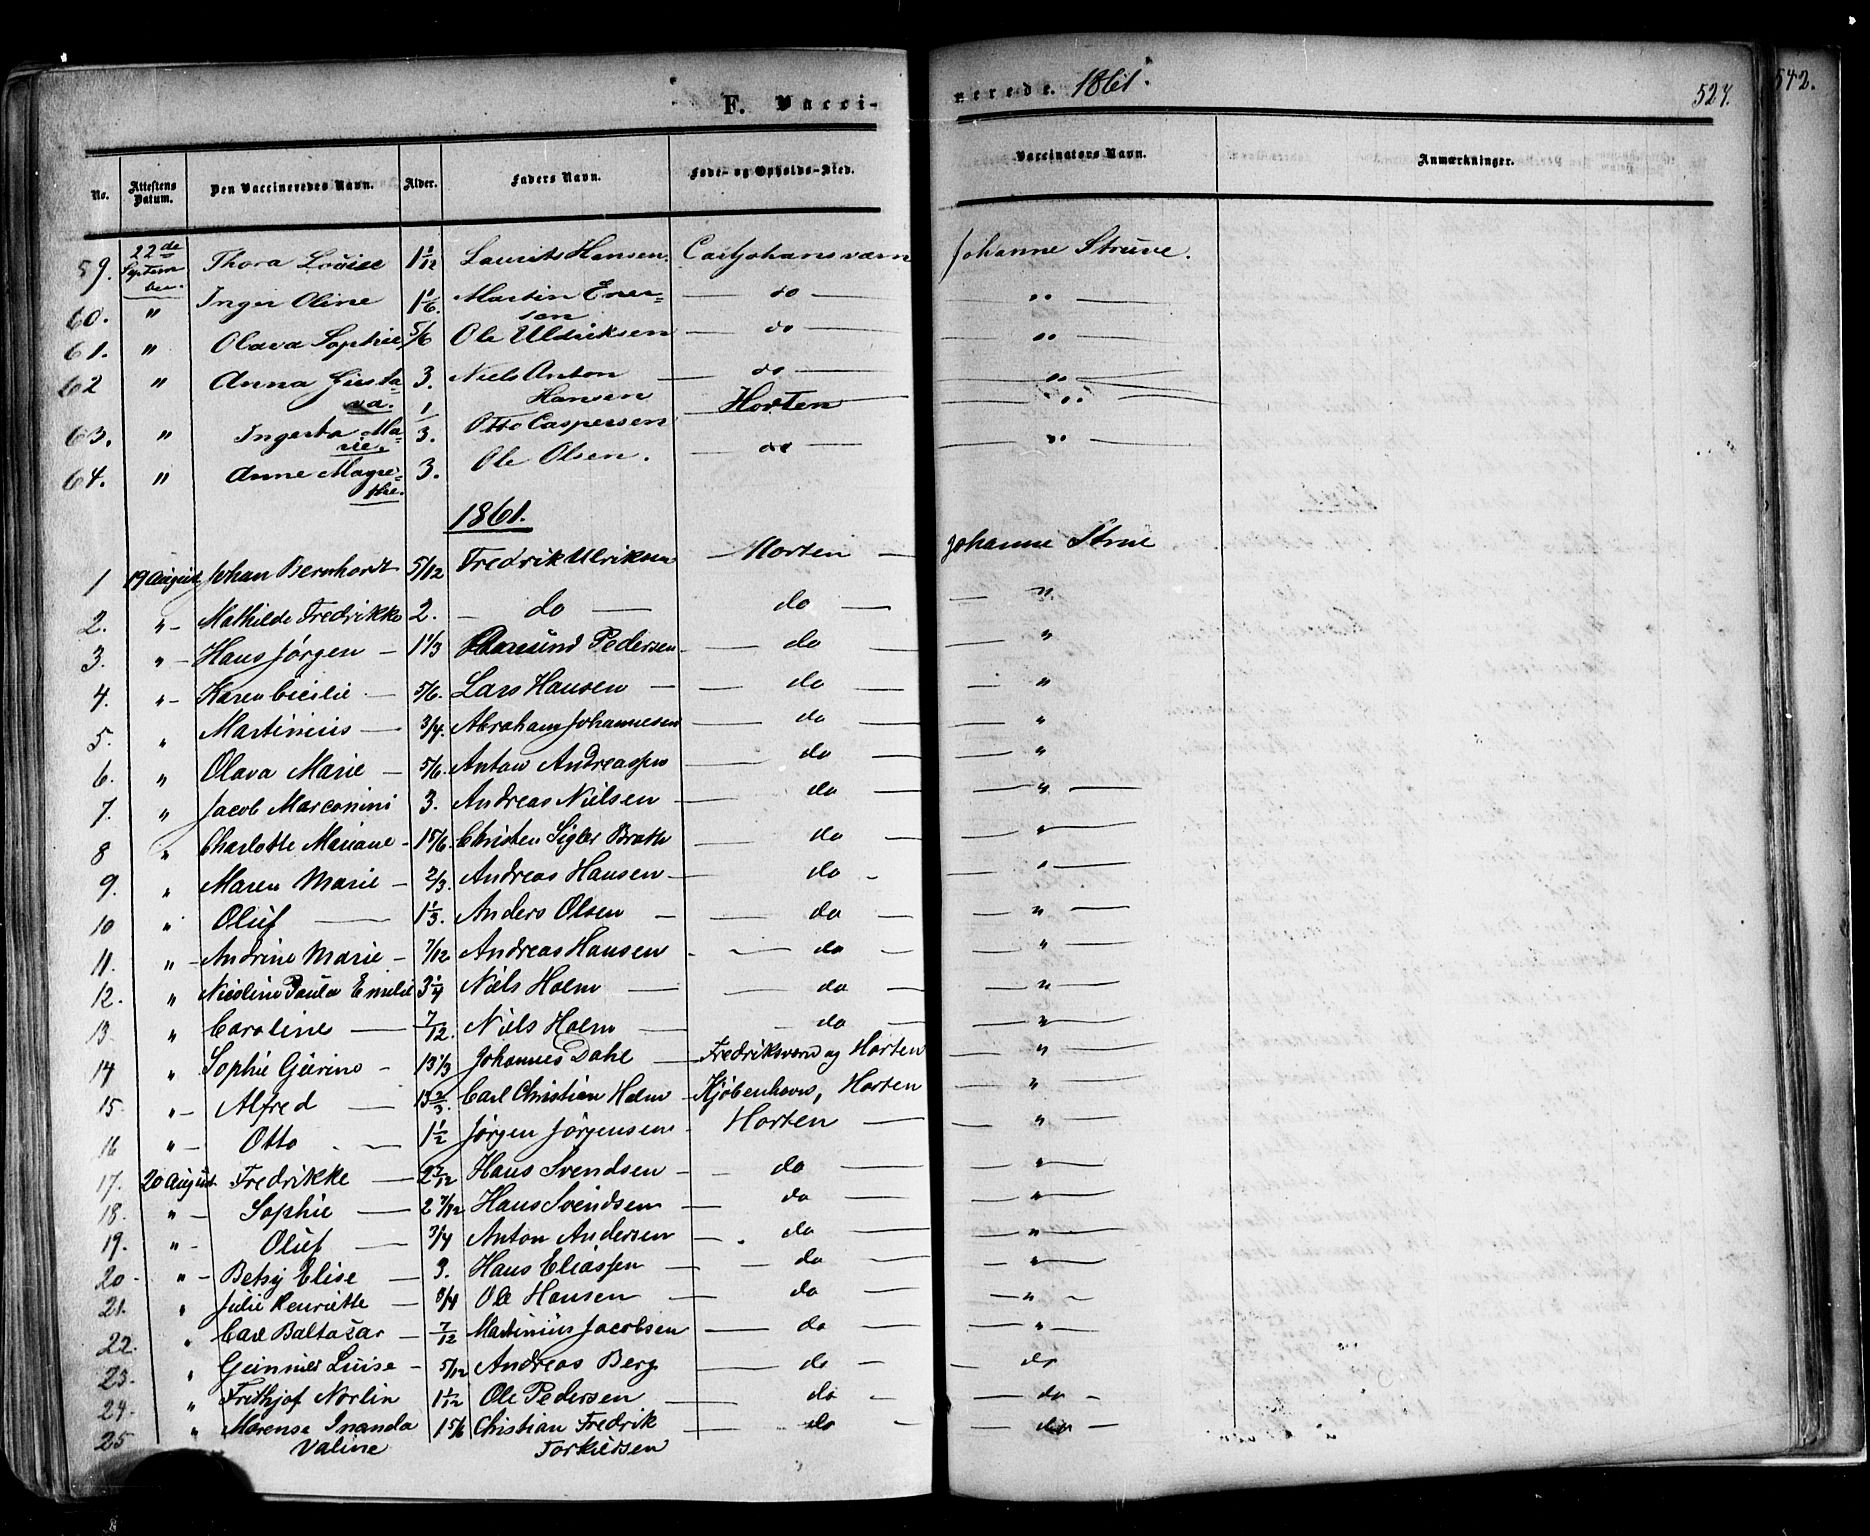 F. Vacci-
nerede. 1861.
527.
542.
No. | Attestens Datum. | Den Vaccineredes Navn. | Alder. | Faders Navn. | Føde- og Opholds-Sted. | Vaccinators Navn. | Anmærkninger.
59. | 22de Septem ber. | Thora Lovise | 1 1/12 | Laurits Hansen. | Carljohansværn | Johanne Strüve.
60. | " | Inger Oline | 1 1/6. | Martin Ener- sen | — do — | " —
61. | " | Olava Sophie | 5/6 | Ole Uldriksen | — do — | — " —
62 | " | Anna Gusta- va. | 3. | Niels Anton Hansen | — do — | — " —
63. | " | Ingerta Ma- rie. | 1/3. | Otto Caspersen | — Horten — | — " —
64. | " | Anne Magre- the. | 3. | Ole Olsen. | — do | — " —
1861.
1 | 19 August | Johan Bernhard | 5/12 | Fredrik Ulriksen | — Horten — | Johanne Strüve
2. | " – | Mathilde Fredrikke | 2. | — do — | do — | — "
3. | " – | Hans Jørgen – | 1 1/3 | Pedersen | — do | — "
4. | " – | Karen Cicilie – | 5/6. | Lars Hansen — | — do — | — "
5. | " | Martinius — | 3/4. | Abraham Johannesen | — do — | — "
6. | " | Olava Marie – | 5/6. | Anton Andreassen | — do — | — "
7. | " | Jacob | 3. | Andreas Nielsen | — do — | — " —
8 | " | Charlotte Mariane – | 1 5/6. | Christen Sigler Brath | — do — | — " —
9. | " | Maren Marie – | 2/3. | Andreas Hansen | — do – | — " —
10 | " | Oluf — | 1 1/3. | Anders Olsen – | — do — | — " —
11. | " – | Andrine Marie – | 7/12 | Andreas Hansen | — do — | — " —
12. | " | Nicoline Paula Emilie | 3 1/4 | Niels Holm — | — do — | — " —
13. | " | Caroline — | 7/12. | Niels Holm — | – do — | — " —
14 | " | Sophie Gurine – | 13 1/3 | Johannes Dahl — | Fredriksværn og Horten | — "
15. | " – | Alfred — | 13 2/3. | Carl Christian Holm | Kjøbenhavn, Horten | — "
16 | " – | Otto – — | 1 1/2 | Jørgen Jørgensen | Horten — | — " —
17. | 20 August | Fredrikke — | 2 7/12 | Hans Svendsen – | – do — | — " —
18. | " – | Sophie — | 2 7/12 | Hans Svendsen | — do — | — " —
19. | " – | Oluf — | 3/4 | Anton Andersen | — do — | — " —
20. | " – | Betsy Elise — | 3. | Hans Eliassen | – do — | — " —
21. | " | Julie Henriette — | 3/4 | Ole Hansen — | — do — | — " –
22. | " | Carl Baltazar — | 7/12 | Martinius Jacobsen | — do — | — " —
23. | " | Luise – | 5/12 | Andreas Berg | — do – | — do
24. | " | Frithjof Norlin | 1 1/12 | Ole Pedersen | — do – | — do –
25. | " | Marense Inanda Valine | 1 5/6 | Christian Fredrik Torkildsen | — do – | — do —